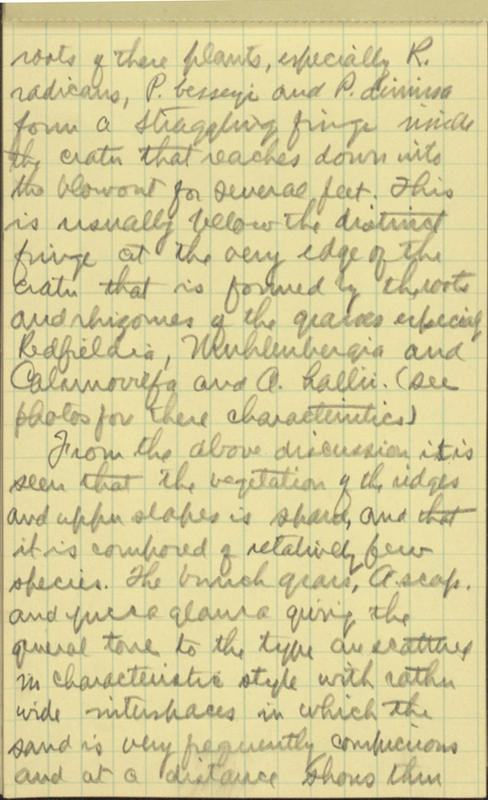 roots of these plants, especially R.
radicans, P. besseyi and P. demissa
form a straggling fringe inside
the crater that reaches down into
the blowout for several feet. This
is usually below the distinct
fringe at the very edge of the
crater that is formed by the roots
and rhizomes of the grasses especially
Redfieldia, Muhlenbergia and
Calamovilfa and A. hallii. (see
photos for these characteristics)
From the above discussion it is
seen that the vegetation of the ridges
and upper slopes is sparse, and that
it is composed of relatively few
species. The bunch grass, A. scop.
and yucca glauca giving the
general tone to the type are scattered
in characteristic style with rather
wide interspaces in which the
sand is very frequently conspicuous
and at a distance shows thru